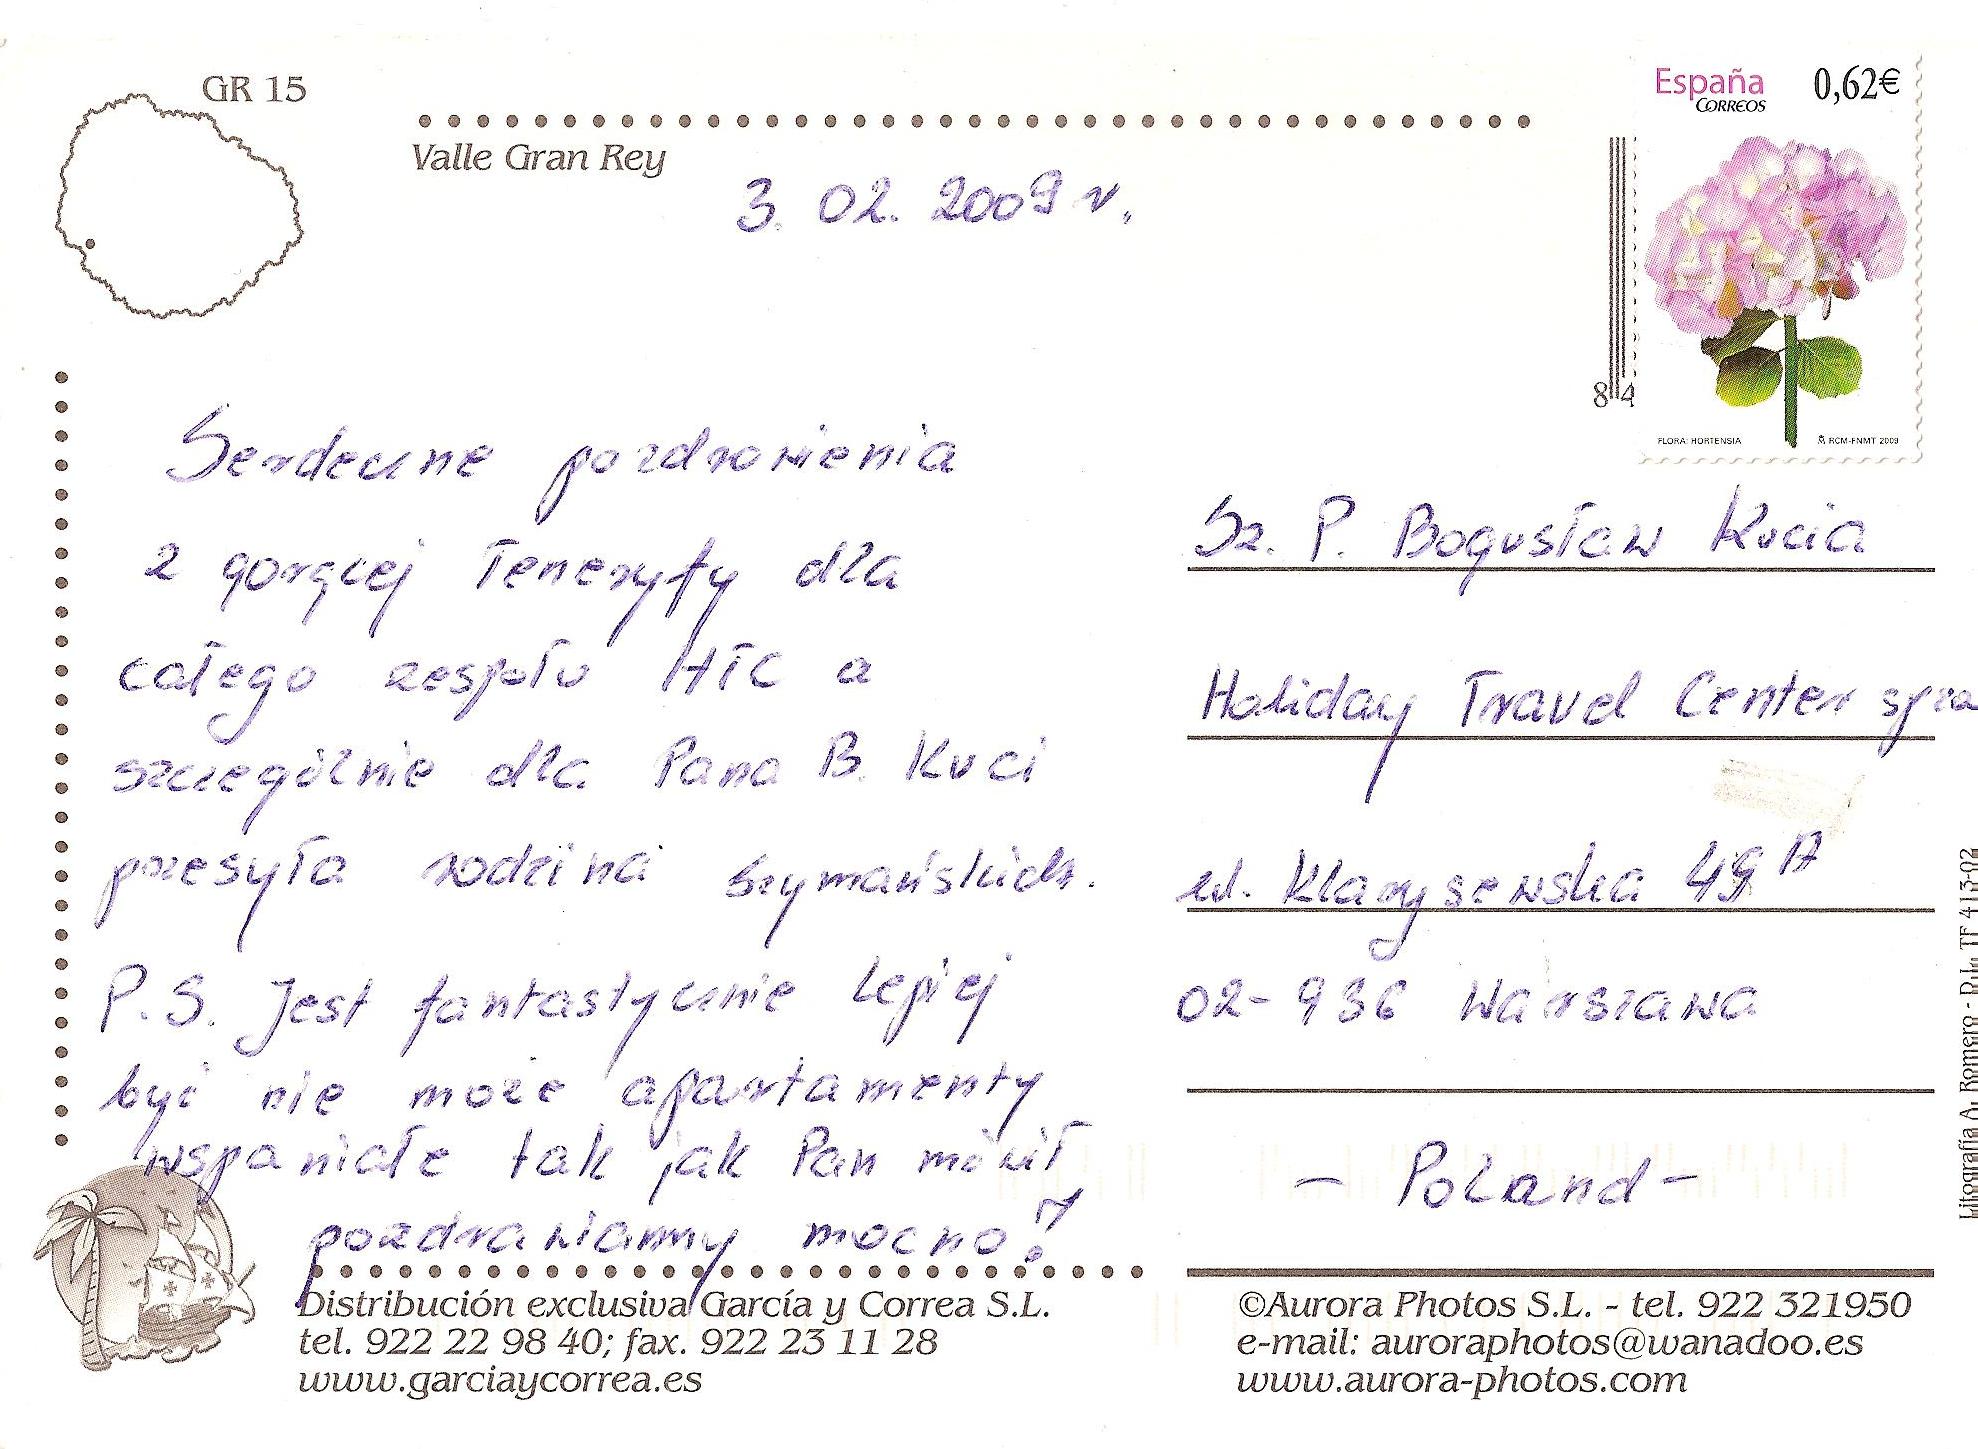 GR 15
Valle Gran Rey
3. 02. 2009 r.
España 0,62€
CORREOS
84
FLORA: HORTENSIA RCM-FNMT 2009
Serdeczne pozdrowienia
z gorącej Teneryfy dla
całego zespołu HTC a
szczególnie dla Pana B. Kuci
przesyła rodzina Szymańskich.
P.S. Jest fantastycznie lepiej
być nie może apartamenty
wspaniałe tak jak Pan mówił
pozdrawiamy mocno!
Sz. P. Bogusław Kucia
Holiday Travel Center sp zo
ul. Klarysewska 49 A
02-936 Warszawa
- Poland -
Distribución exclusiva García y Correa S.L.
tel. 922 22 98 40; fax. 922 23 11 28
www.garciaycorrea.es
©Aurora Photos S.L. - tel. 922 321950
e-mail: auroraphotos@wanadoo.es
www.aurora-photos.com
Litografía A. Romero - TF